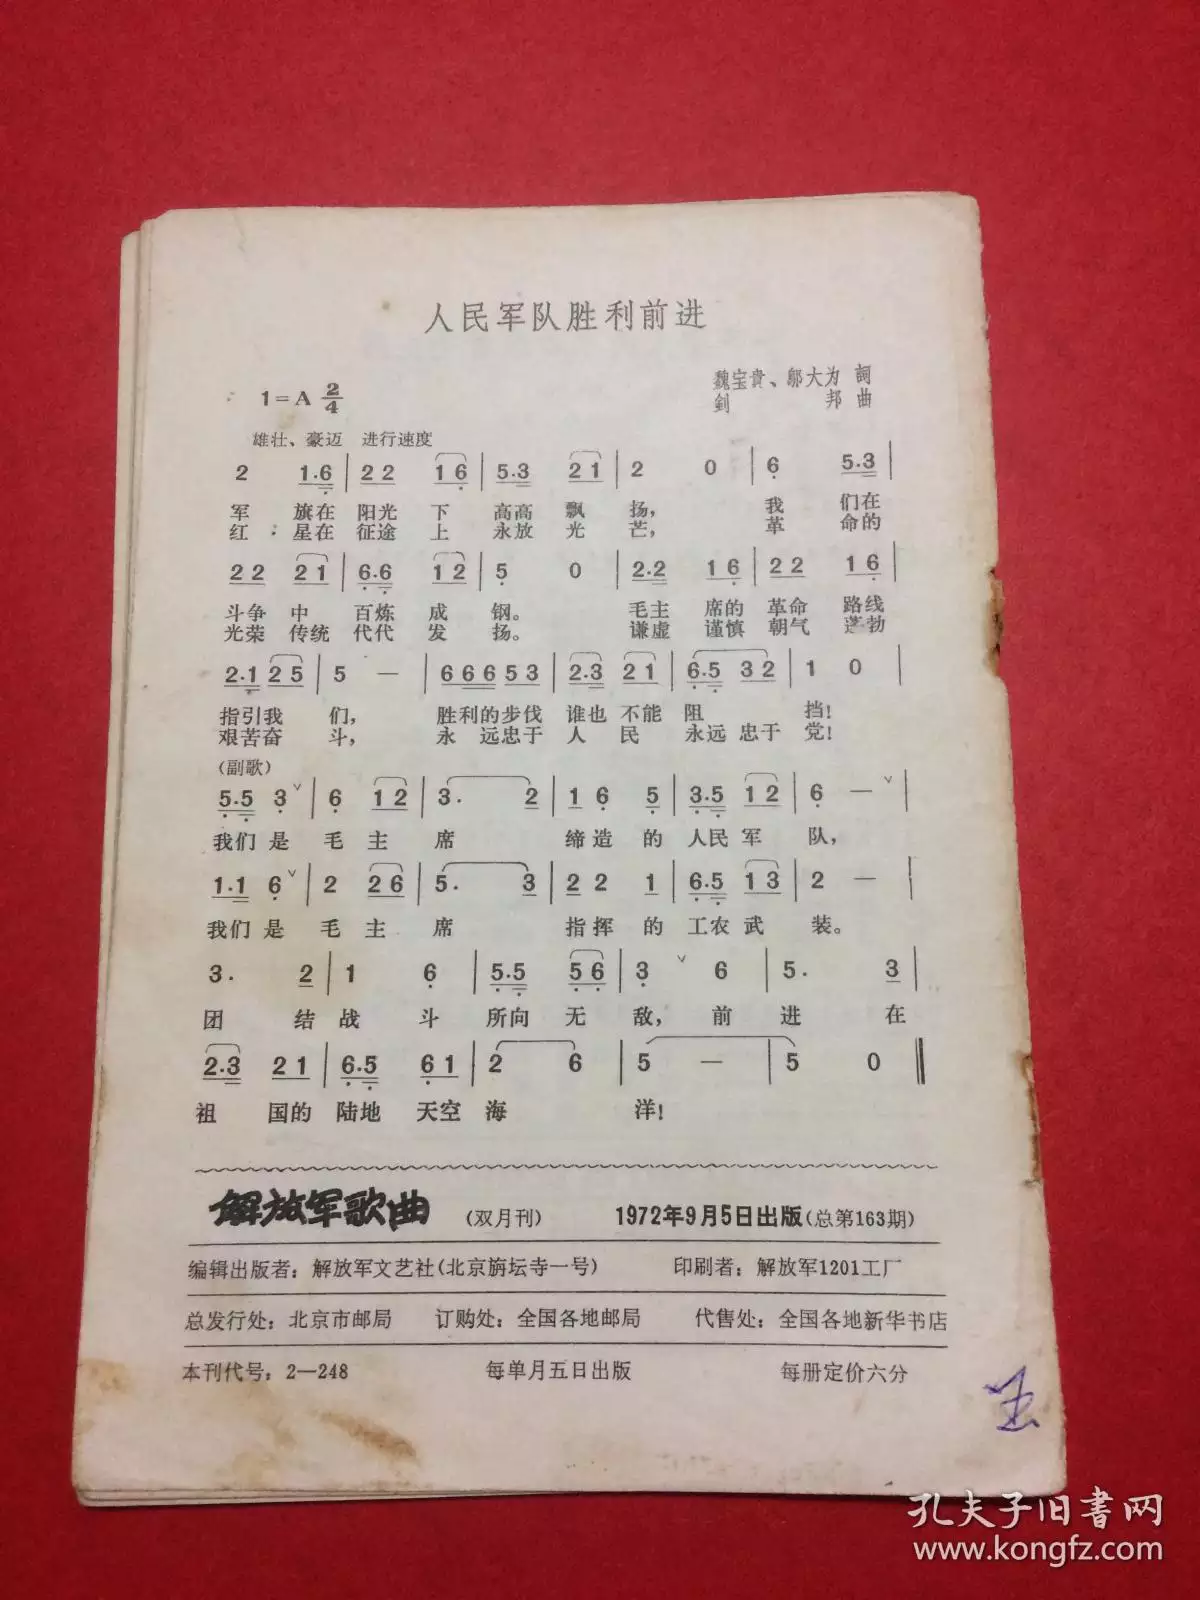 人民军队胜利前进
魏宝貴、鄔大为 詞
1=A 2/4
釗 邦 曲
雄壮、豪迈 进行速度
2 1·6 | 22 16 | 5·3 21 | 2 0 | 6 5·3 |
军 旗在 阳光 下 高高 飘 扬， 我 们在
红 星在 征途 上 永放 光 芒， 革 命的
22 21 | 6·6 12 | 5 0 | 2·2 16 | 22 16 |
斗争 中 百炼 成 钢。 毛主 席的 革命 路线
光荣 传统 代代 发 扬。 谦虚 谨慎 朝气 蓬勃
2·1 25 | 5 — | 6665 53 | 2·3 21 | 6·5 32 | 1 0 |
指引我 们， 胜利的步伐 谁也 不能 阻 挡！
艰苦奋 斗， 永 远忠于 人 民 永远 忠于 党！
(副歌)
5·5 3 ∨ | 6 12 | 3· 2 | 1 6 5 | 3·5 12 | 6 — ∨ |
我们 是 毛 主 席 缔 造 的 人民 军 队，
1·1 6 ∨ | 2 26 | 5· 3 | 2 2 1 | 6·5 13 | 2 — |
我们 是 毛 主 席 指 挥 的 工农 武 装。
3· 2 | 1 6 | 5·5 56 | 3 ∨ 6 | 5· 3 |
团 结 战 斗 所向 无 敌， 前 进 在
2·3 21 | 6·5 61 | 2 6 | 5 — | 5 0 ‖
祖 国的 陆地 天空 海 洋！
解放军歌曲 (双月刊) 1972年9月5日出版(总第163期)
编辑出版者：解放军文艺社(北京旃坛寺一号) 印刷者：解放军1201工厂
总发行处：北京市邮局 订购处：全国各地邮局 代售处：全国各地新华书店
本刊代号：2—248 每单月五日出版 每册定价六分
孔夫子旧書网
www.kongfz.com